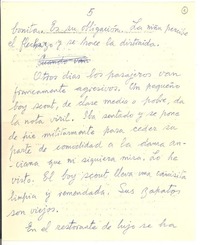 5
bonita. Es su obligación. La niña percibe
el flechazo y se hace la distraída.
Otros días los pasajeros van
francamente agresivos. Un pequeño
boy scout, de clase media o pobre, da
la nota visil. Va sentado y se pone
de pie militarmente para ceder su
parte de comodidad a la dama an-
ciana que ni siquiera mira. Lo he
visto. El boy scout lleva una camisita
limpia y remendada. Sus zapatos
son viejos.
En el restorante de lujo se ha